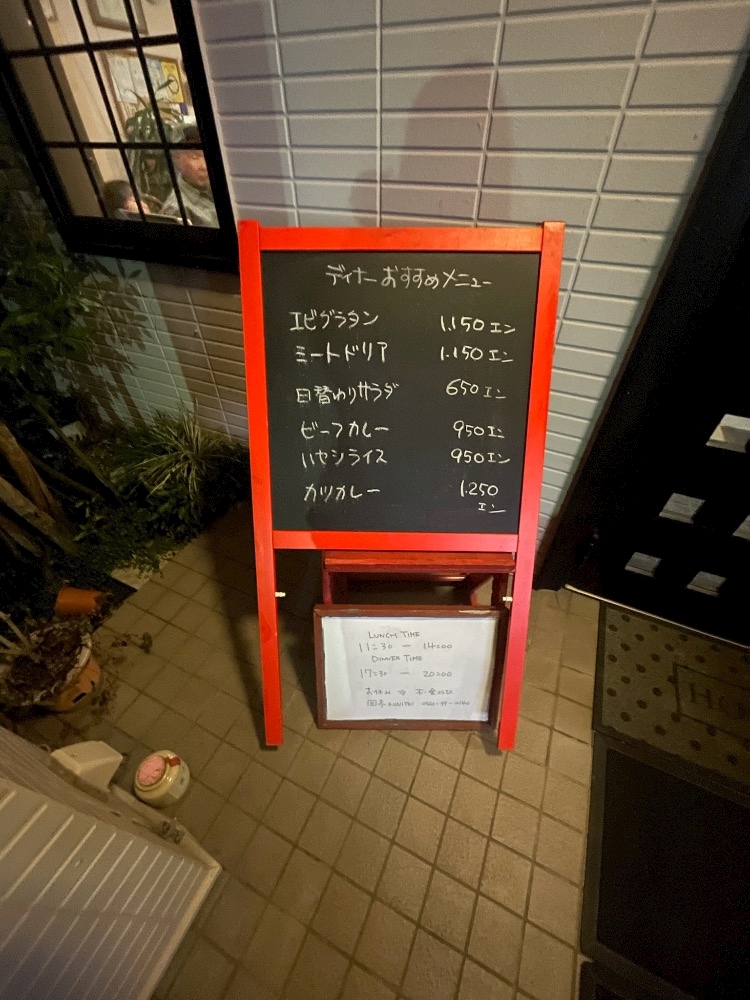 ディナーおすすめメニュー
エビグラタン 1.150エン
ミートドリア 1.150エン
日替わりサラダ 650エン
ビーフカレー 950エン
ハヤシライス 950エン
カツカレー 1.250
エン
LUNCH TIME
11:30 — 14:00
DINNER TIME
17:30 — 20:00
お休み